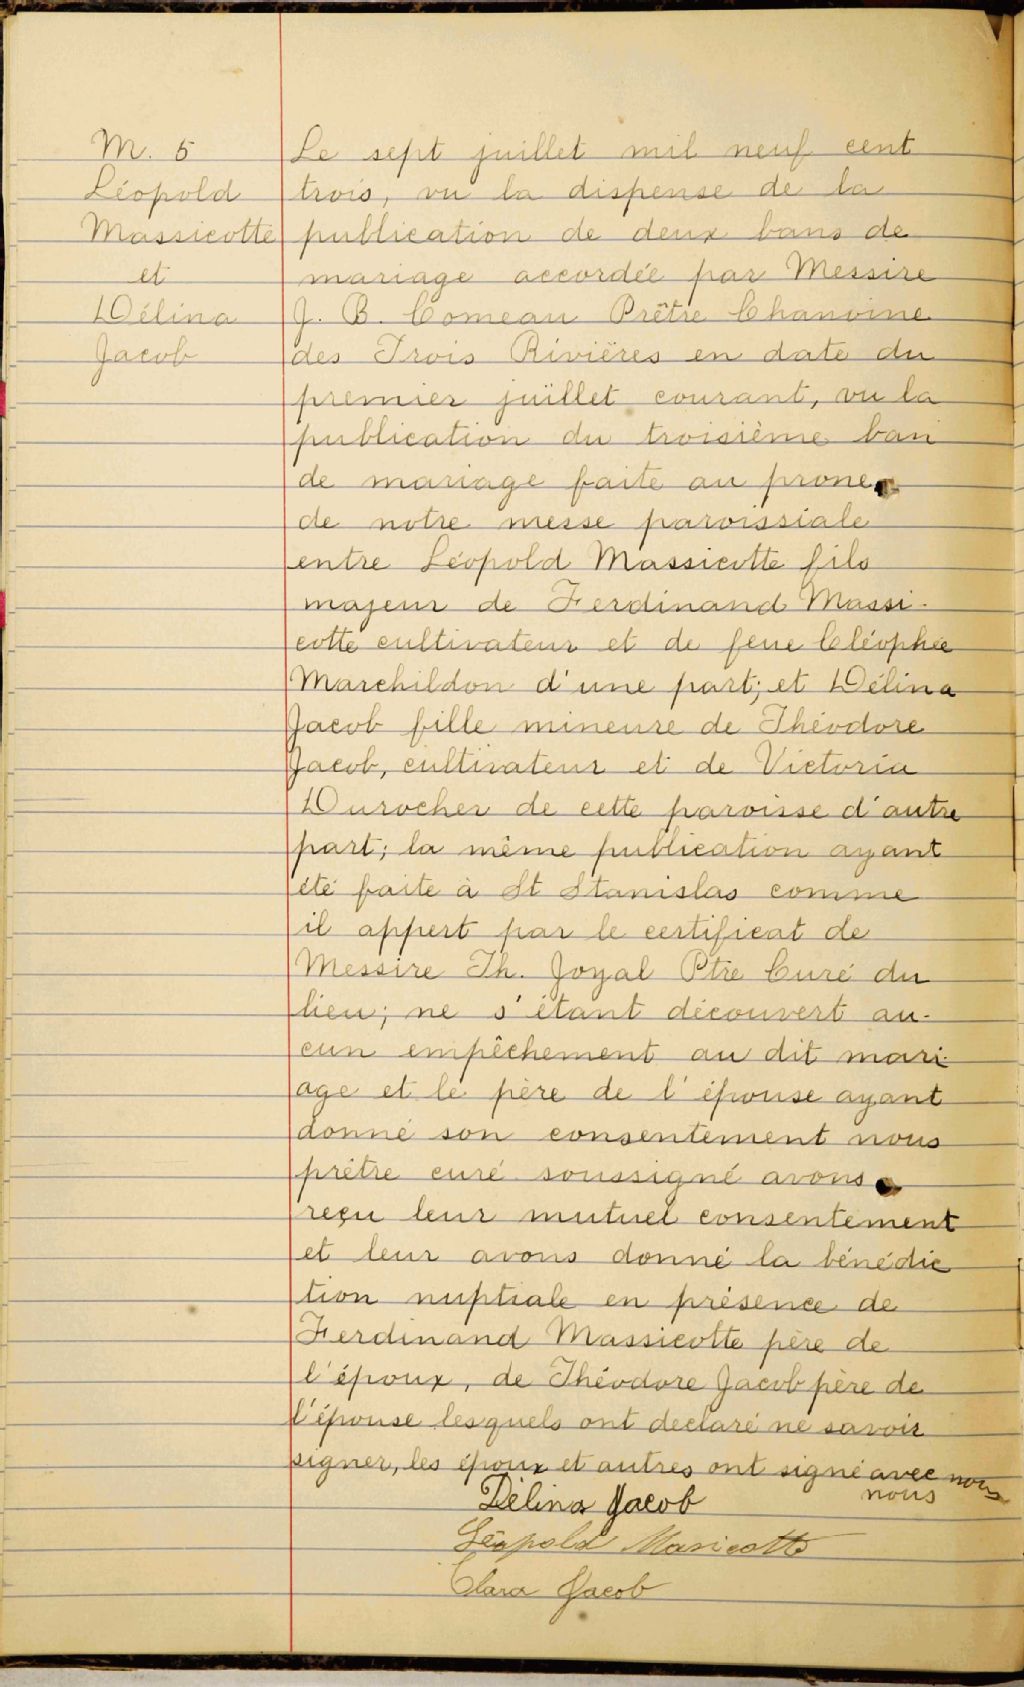 M. 5
Léopold
Massicotte
et
Délina
Jacob
Le sept juillet mil neuf cent
trois, vu la dispense de la
publication de deux bans de
mariage accordée par Messire
J. B. Comeau Prêtre Chanoine
des Trois Rivières en date du
premier juillet courant, vu la
publication du troisième ban
de mariage faite au prone
de notre messe paroissiale
entre Léopold Massicotte fils
majeur de Ferdinand Massi-
cotte cultivateur et de feue Cléophée
Marchildon d'une part; et Délina
Jacob fille mineure de Théodore
Jacob, cultivateur et de Victoria
Durocher de cette paroisse d'autre
part; la même publication ayant
été faite à St Stanislas comme
il appert par le certificat de
Messire Th. Joyal Ptre Curé du
lieu; ne s'étant découvert au-
cun empêchement au dit mari-
age et le père de l'épouse ayant
donné son consentement nous
prêtre curé soussigné avons
reçu leur mutuel consentement
et leur avons donné la bénédic
tion nuptiale en présence de
Ferdinand Massicotte père de
l'époux, de Théodore Jacob père de
l'épouse lesquels ont declaré ne savoir
signer, les époux et autres ont signé avec nous
nous
Délina Jacob
Léopold Masicotte
Clara Jacob